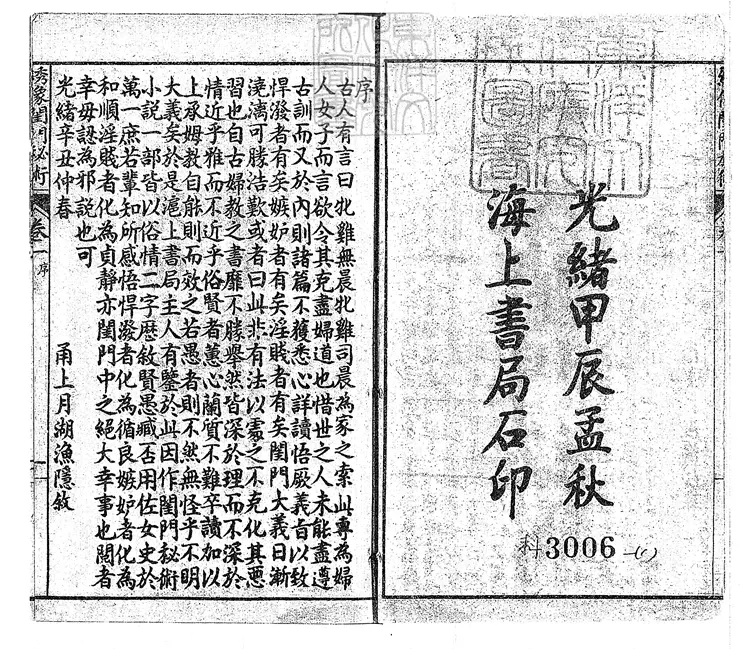 東洋文
化研究
所圖書
光緒甲辰孟秋
海上書局石印
科3006—(1)
序
古人有言曰牝雞無晨牝雞司晨為家之索此專為婦
人女子而言欲令其克盡婦道也惜世之人未能盡遵
古訓而又於內則諸篇不獲悉心詳讀悟厥義旨以致
悍潑者有矣嫉妒者有矣淫賤者有矣閨門大義日漸
澆漓可勝浩歎或者曰此非有法以處之不克化其惡
習也自古婦教之書靡不勝舉然皆深於理而不深於
情近乎雅而不近乎俗賢者蕙心蘭質不難卒讀加以
上承姆教自能則而效之若愚者則不然無怪乎不明
大義矣於是滬上書局主人有鑒於此因作閨門秘術
小說一部皆以俗情二字歷敘賢愚臧否用佐女史於
萬一庶若輩知所感悟悍潑者化為循良嫉妒者化為
和順淫賤者化為貞靜亦閨門中之絕大幸事也閱者
幸毋認為邪說也可
光緒辛丑仲春 甬上月湖漁隱敘
繡像閨門秘術 卷一 序 一